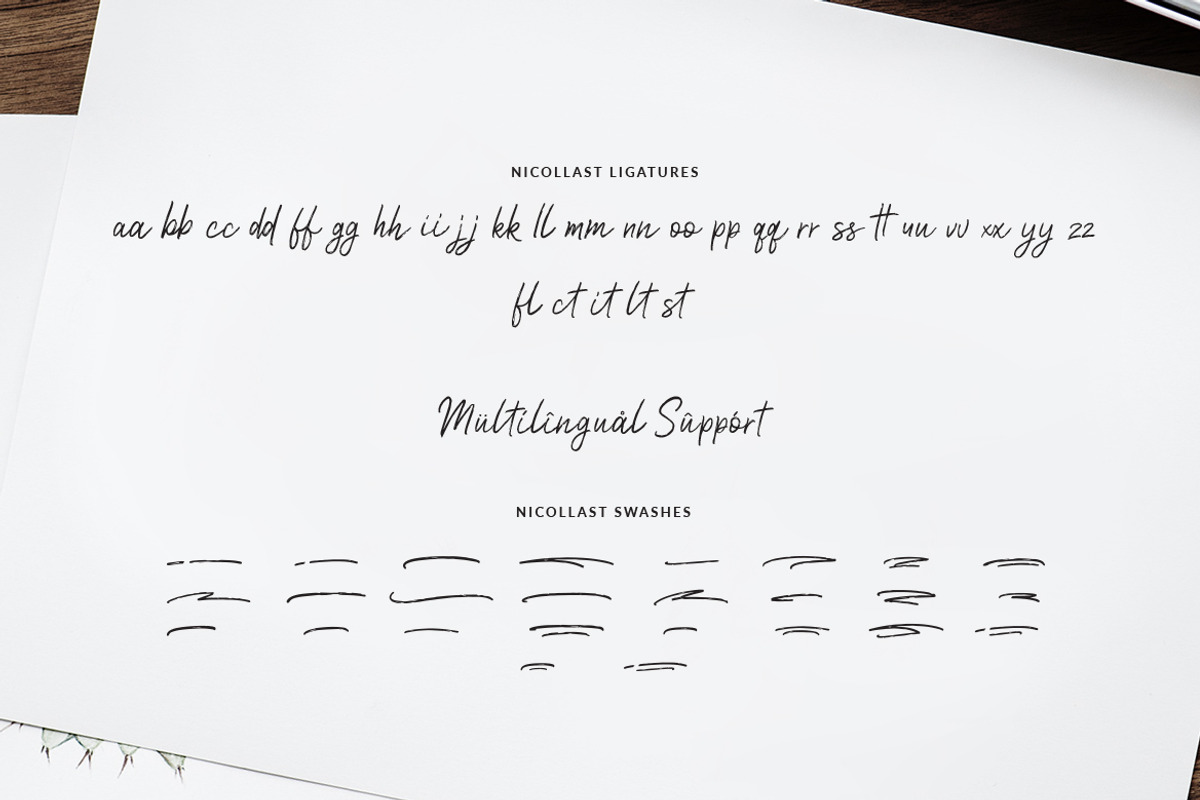 NICOLLAST LIGATURES
aa bb cc dd ff gg hh ii jj kk ll mm nn oo pp qq rr ss tt uu vv xx yy zz
fl ct it lt st
Mültilînguål Sûppórt
NICOLLAST SWASHES